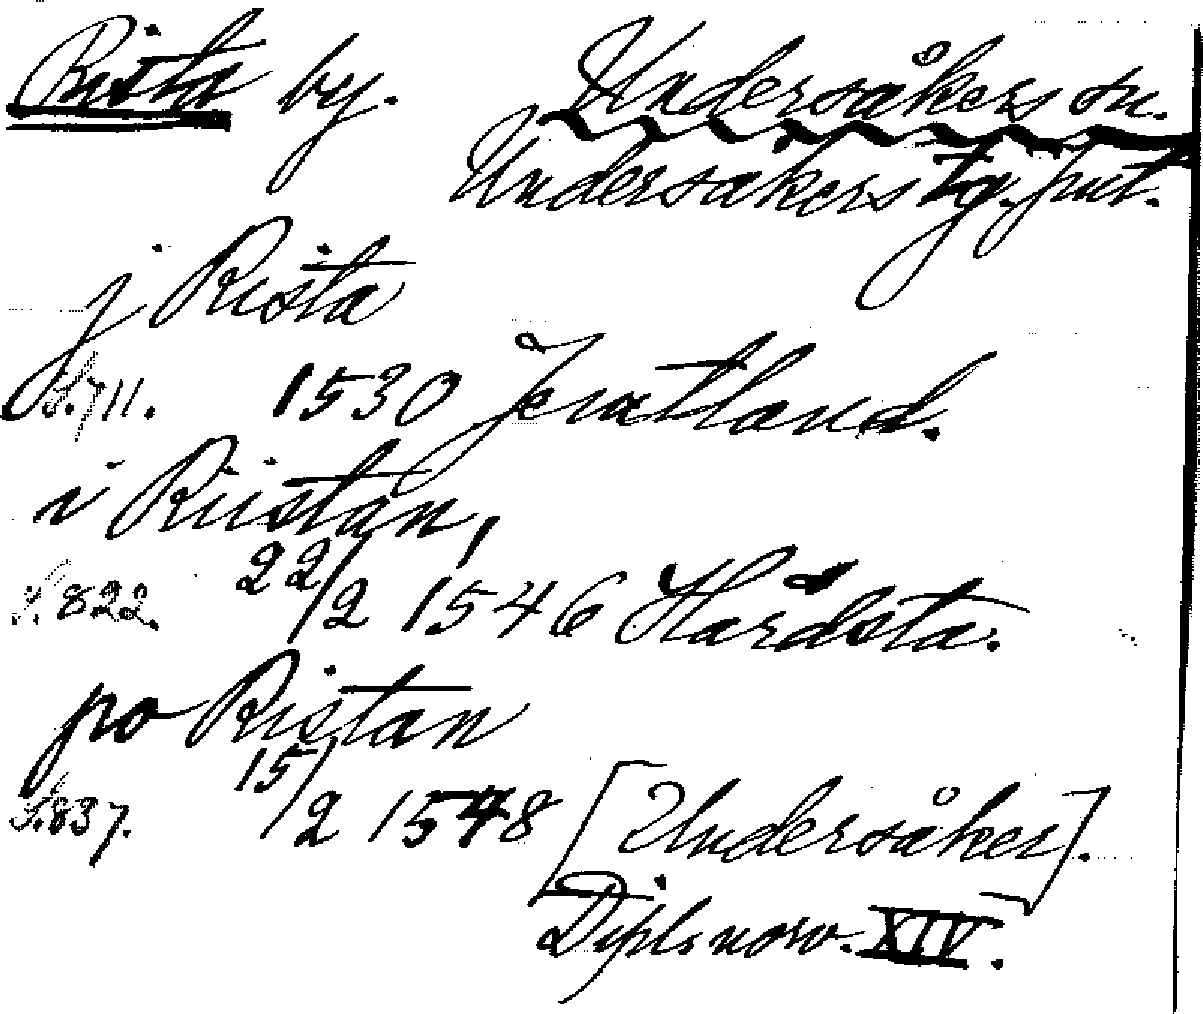 Rista by. Undersåkers sn.
Undersåkers tg. Jmt.
j Rista
S. 711. 1530 Jemtland.
i Riistan,
S. 822. 22/2 1546 Hårdsta.
po Ristan
S. 837. 15/2 1548 [Undersåker].
Dipl. norv. XIV.